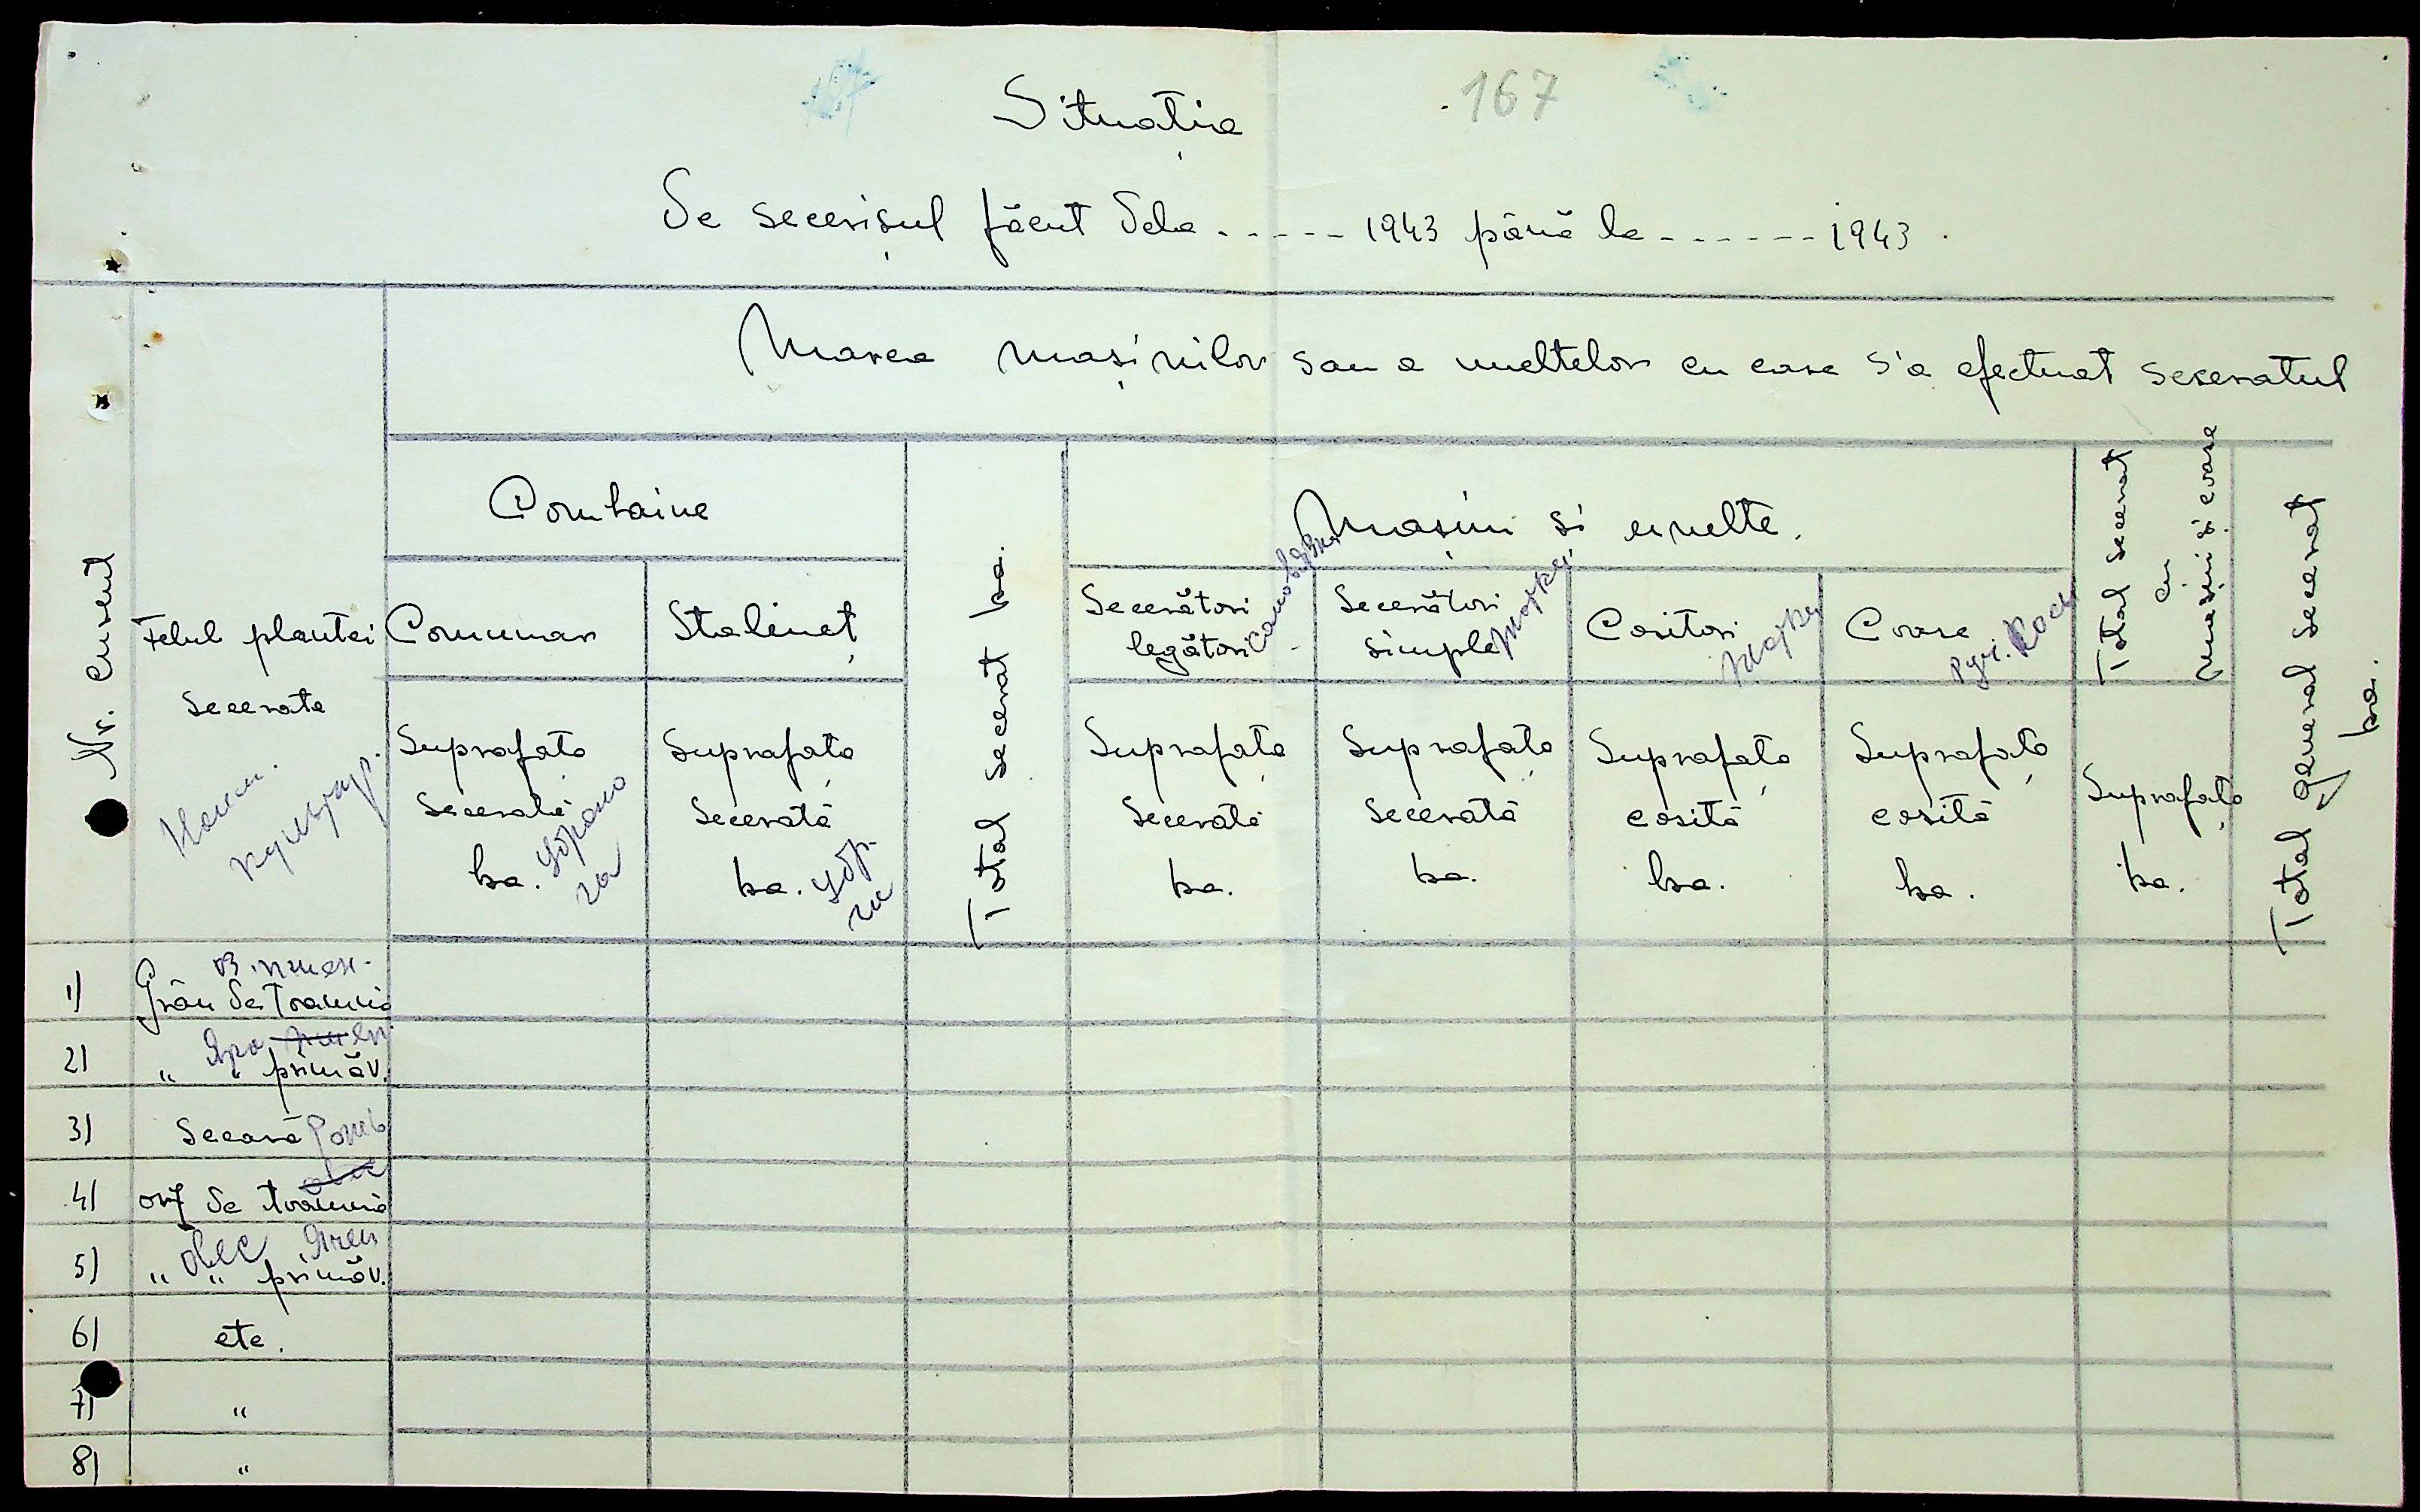 Situația
167
De secerișul făcut dela ..... 1943 până la ...... 1943.
Marca mașinilor sau a uneltelor cu care s'a efectuat seceratul
Nr. curent
Felul plantei
secerate
Наим.
культур.
Combaine
Comunar
Stalineț
Suprafața
secerată
ha.
Убрано
га
Suprafața
secerată
ha.
убр.
га
Total secerat ha.
Mașini și unelte.
Secerători
legători
Secerători
simple
Cositori
Coase
руч. косы
Suprafața
secerată
ha.
Suprafața
secerată
ha.
Suprafața
cosită
ha.
Suprafața
cosită
ha.
Total secerat
cu
mașini și coase
Suprafața
ha.
Total general secerat
ha.
1) Grâu de toamnă
оз. пшен.
2) " " primăv.
Яра
3) Secară Рожь
4) orz de toamnă
5) " " primăv.
овес
6) etc.
7) "
8) "